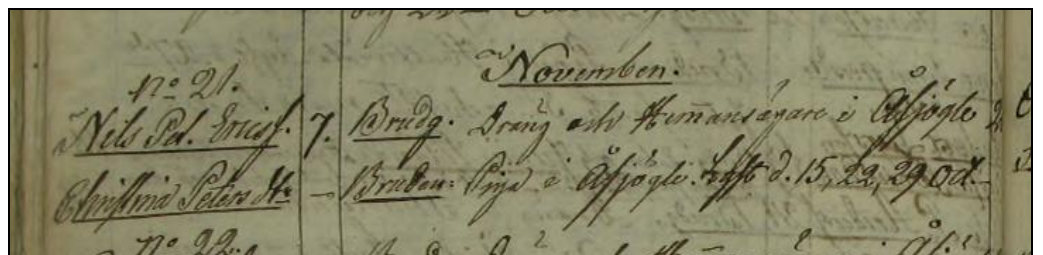 Novemben.
no 21.
Nels Pet. Ericss. 7. Brudg. Dräng och Hem̄ansägare i Åssjögle
Christina Peters dtr – Bruden: Piga i Åssjögle. Lyst d. 15, 22, 29 Oct.
no 22.